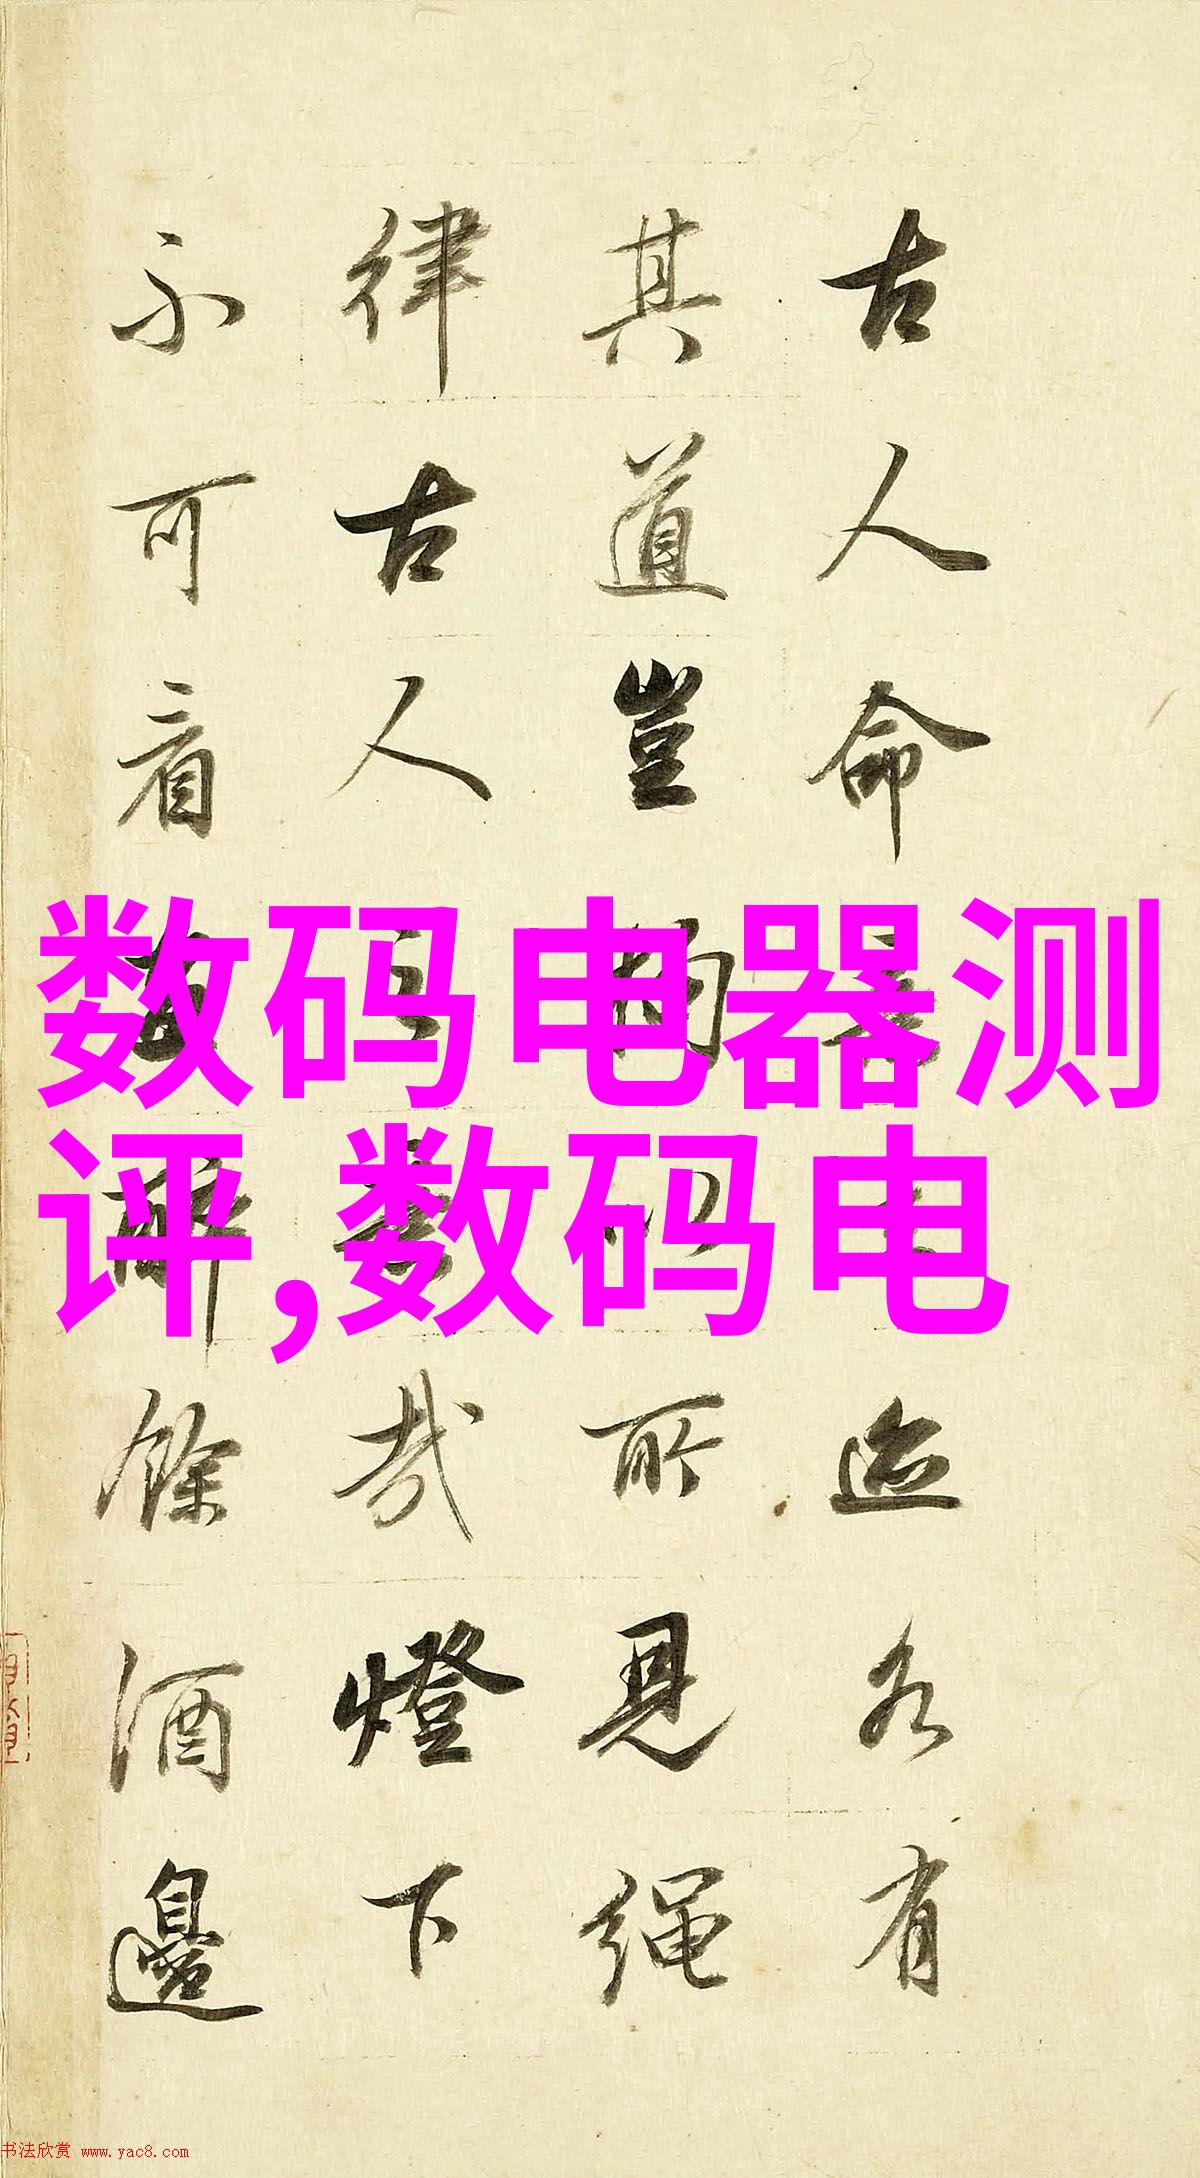 数码电器测
评,数码电
古人命迹各有
其道豈拘以所見繩
律古人之意哉燈下
不可看醉餘酒邊
书法欣赏 www.yac8.com